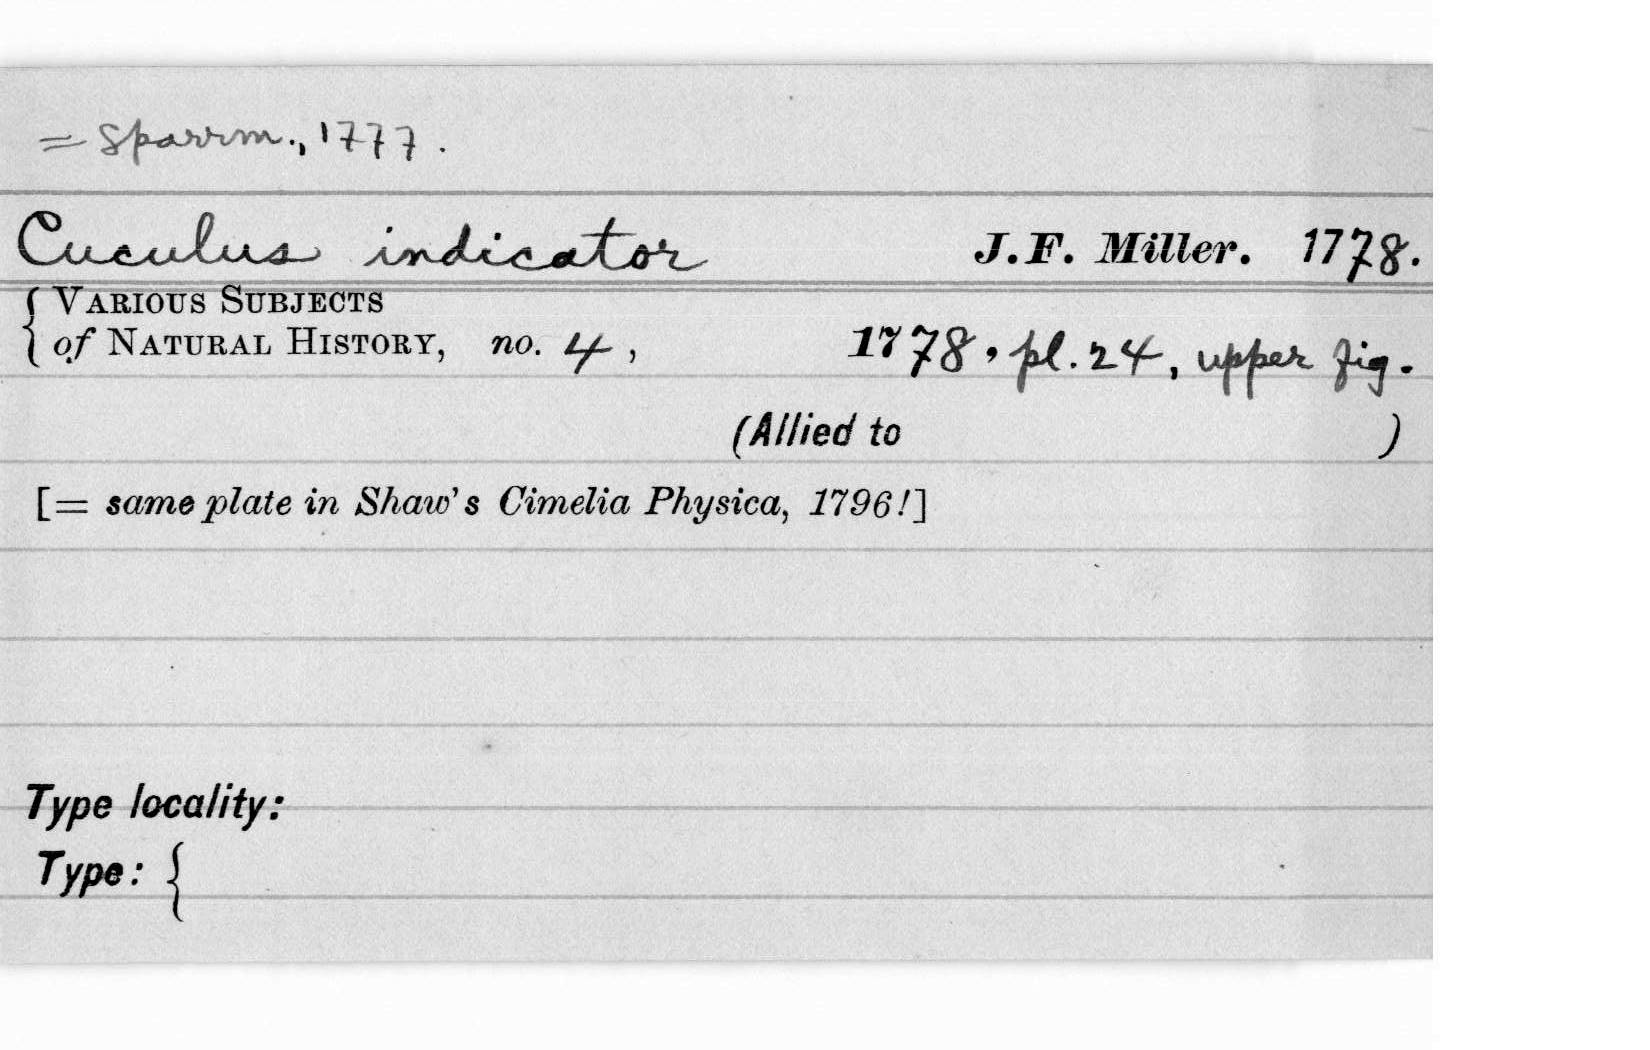 = Sparrm., 1777.
Cuculus indicator J.F. Miller. 1778.
{ VARIOUS SUBJECTS
of NATURAL HISTORY, no. 4, 1778, pl. 24, upper fig.
(Allied to )
[= same plate in Shaw's Cimelia Physica, 1796!]
Type locality:
Type: {